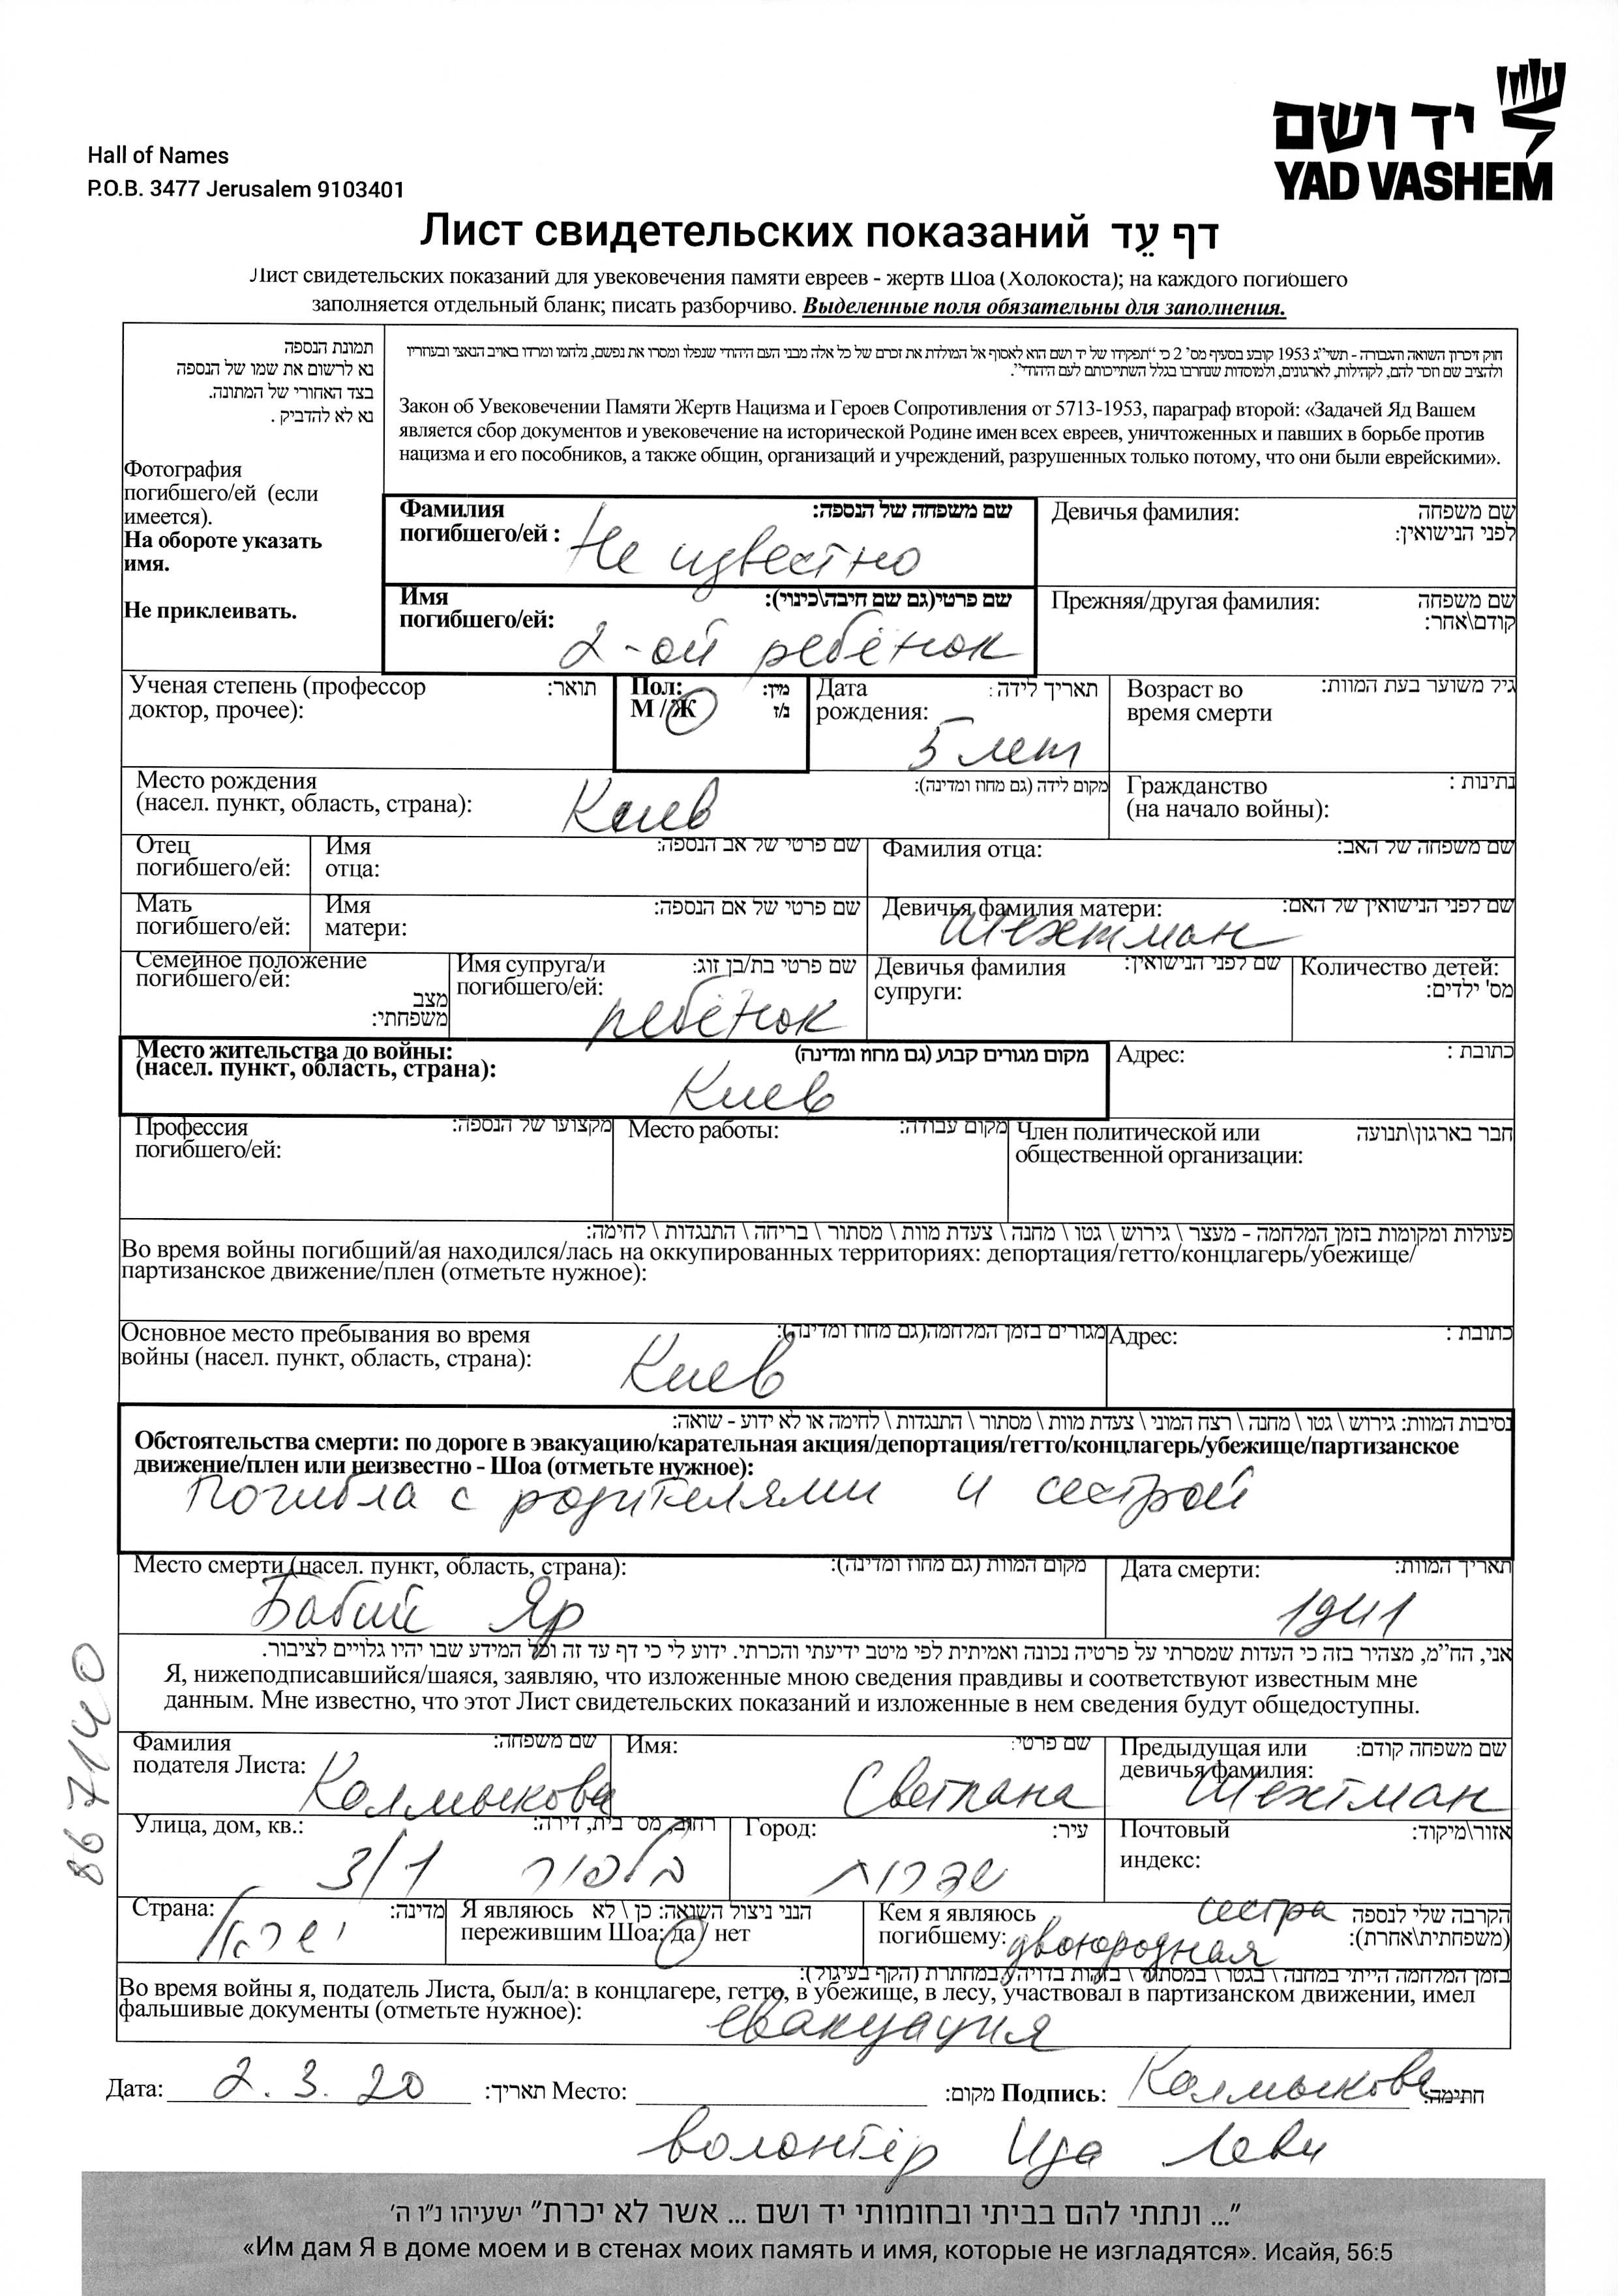 יד ושם
YAD VASHEM
Hall of Names
P.O.B. 3477 Jerusalem 9103401
Лист свидетельских показаний דף עֵד
Лист свидетельских показаний для увековечения памяти евреев - жертв Шоа (Холокоста); на каждого погибшего
заполняется отдельный бланк; писать разборчиво. Выделенные поля обязательны для заполнения.
תמונת הנספה
נא לרשום את שמו של הנספה
בצד האחורי של המתונה.
נא לא להדביק .
Фотография
погибшего/ей (если
имеется).
На обороте указать
имя.
Не приклеивать.
חוק זיכרון השואה והגבורה - תשי״ג 1953 קובע בסעיף מס' 2 כי "תפקידו של יד ושם הוא לאסוף אל המולדת את זכרם של כל אלה מבני העם היהודי שנפלו ומסרו את נפשם, נלחמו ומרדו באויב הנאצי ובעוזריו
ולהציב שם וזכר להם, לקהילות, לארגונים, ולמוסדות שנחרבו בגלל השתייכותם לעם היהודי".
Закон об Увековечении Памяти Жертв Нацизма и Героев Сопротивления от 5713-1953, параграф второй: «Задачей Яд Вашем
является сбор документов и увековечение на исторической Родине имен всех евреев, уничтоженных и павших в борьбе против
нацизма и его пособников, а также общин, организаций и учреждений, разрушенных только потому, что они были еврейскими».
Фамилия погибшего/ей : שם משפחה של הנספה:
Не известно
Девичья фамилия: שם משפחה לפני הנישואין:
Имя погибшего/ей: שם פרטי(גם שם חיבה\כינוי):
2-ой ребёнок
Прежняя/другая фамилия: שם משפחה קודם\אחר:
Ученая степень (профессор доктор, прочее): תואר:
Пол: М / Ж מין: ז/נ
Дата рождения: תאריך לידה :
5 лет
Возраст во время смерти גיל משוער בעת המוות:
Место рождения (насел. пункт, область, страна): מקום לידה (גם מחוז ומדינה):
Киев
Гражданство (на начало войны): נתינות :
Отец погибшего/ей:
Имя отца: שם פרטי של אב הנספה:
Фамилия отца: שם משפחה של האב:
Мать погибшего/ей:
Имя матери: שם פרטי של אם הנספה:
Девичья фамилия матери: שם לפני הנישואין של האם:
Шехтман
Семейное положение погибшего/ей: מצב משפחתי:
Имя супруга/и погибшего/ей: שם פרטי בת/בן זוג:
ребёнок
Девичья фамилия супруги: שם לפני הנישואין:
Количество детей: מס' ילדים:
Место жительства до войны: (насел. пункт, область, страна): מקום מגורים קבוע (גם מחוז ומדינה)
Киев
Адрес: כתובת :
Профессия погибшего/ей: מקצועו של הנספה:
Место работы: מקום עבודה:
Член политической или общественной организации: חבר בארגון\תנועה
פעולות ומקומות בזמן המלחמה - מעצר \ גירוש \ גטו \ מחנה \ צעדת מוות \ מסתור \ בריחה \ התנגדות \ לחימה:
Во время войны погибший/ая находился/лась на оккупированных территориях: депортация/гетто/концлагерь/убежище/
партизанское движение/плен (отметьте нужное):
Основное место пребывания во время войны (насел. пункт, область, страна): מגורים בזמן המלחמה(גם מחוז ומדינה):
Киев
Адрес: כתובת :
נסיבות המוות: גירוש \ גטו \ מחנה \ רצח המוני \ צעדת מוות \ מסתור \ התנגדות \ לחימה או לא ידוע - שואה:
Обстоятельства смерти: по дороге в эвакуацию/карательная акция/депортация/гетто/концлагерь/убежище/партизанское
движение/плен или неизвестно - Шоа (отметьте нужное):
Погибла с родителями и сестрой
Место смерти (насел. пункт, область, страна): מקום המוות (גם מחוז ומדינה):
Бабий Яр
Дата смерти: תאריך המוות:
1941
אני, הח״מ, מצהיר בזה כי העדות שמסרתי על פרטיה נכונה ואמיתית לפי מיטב ידיעתי והכרתי. ידוע לי כי דף עד זה וכל המידע שבו יהיו גלויים לציבור.
Я, нижеподписавшийся/шаяся, заявляю, что изложенные мною сведения правдивы и соответствуют известным мне
данным. Мне известно, что этот Лист свидетельских показаний и изложенные в нем сведения будут общедоступны.
8671140
Фамилия подателя Листа: שם משפחה:
Калмыкова
Имя: שם פרטי:
Светлана
Предыдущая или девичья фамилия: שם משפחה קודם:
Шехтман
Улица, дом, кв.: רחוב, מס' בית, דירה:
בלפור 3/1
Город: עיר:
שדרות
Почтовый индекс: אזור\מיקוד:
Страна: מדינה:
ישראל
Я являюсь пережившим Шоа: да / нет הנני ניצול השואה: כן \ לא
Кем я являюсь погибшему: הקרבה שלי לנספה (משפחתית\אחרת):
сестра
двоюродная
בזמן המלחמה הייתי במחנה \ בגטו \ במסתור \ בזהות בדויה \ במחתרת (הקף בעיגול):
Во время войны я, податель Листа, был/а: в концлагере, гетто, в убежище, в лесу, участвовал в партизанском движении, имел
фальшивые документы (отметьте нужное):
евакуация
Дата: 2.3.20 תאריך: Место: מקום: Подпись: Калмыкова חתימה:
волонтёр Ида Леви
"... ונתתי להם בביתי ובחומותי יד ושם ... אשר לא יכרת" ישעיהו נ״ו ה'
«Им дам Я в доме моем и в стенах моих память и имя, которые не изгладятся». Исайя, 56:5